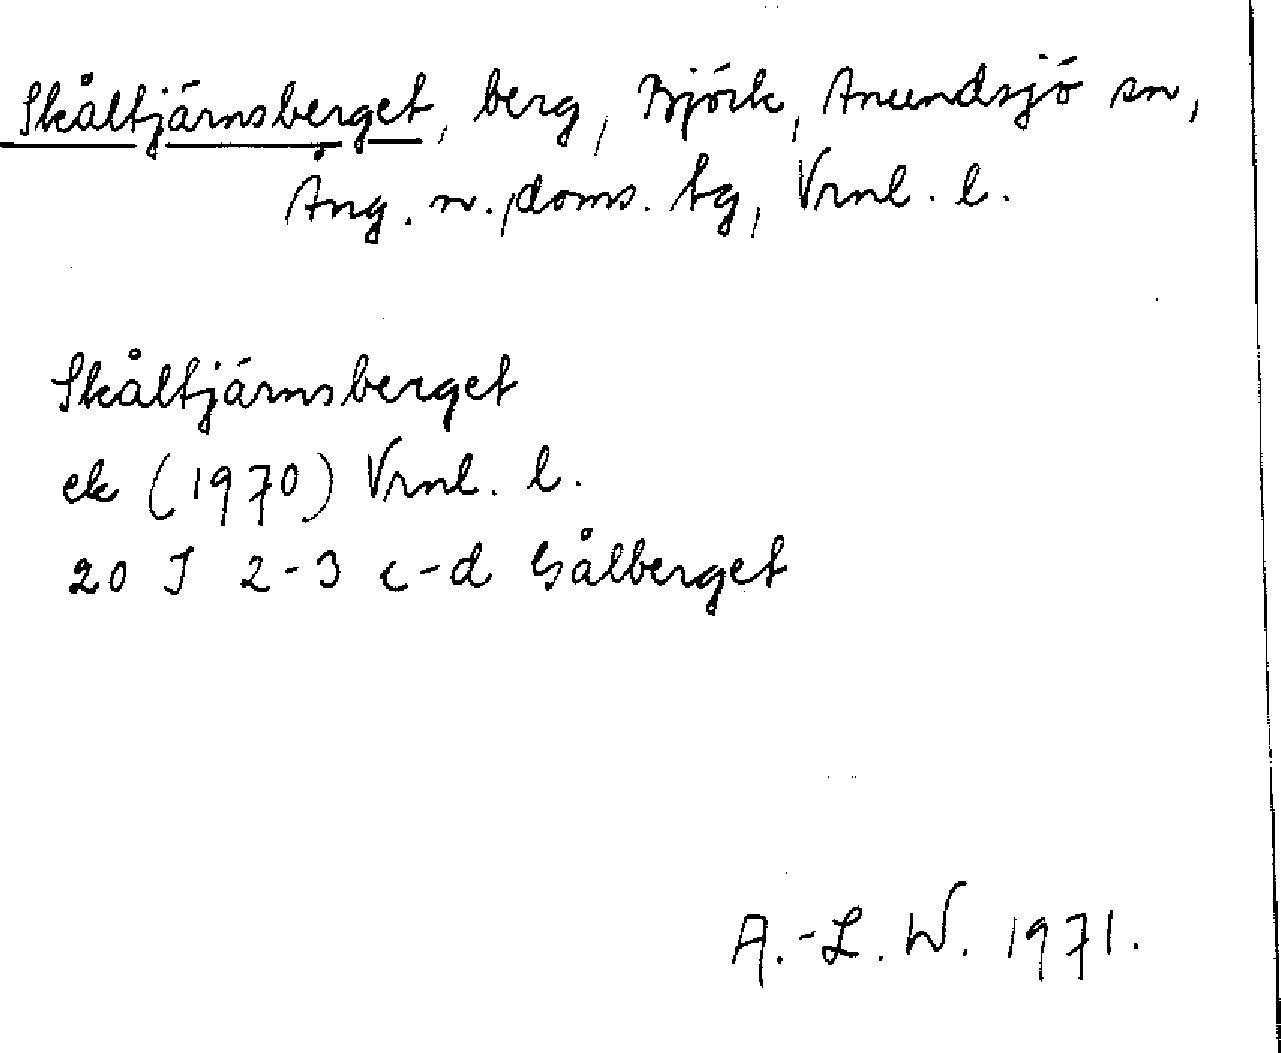 Skåltjärnsberget, berg, Björk, Anundsjö sn,
Ång. n., doms. bg, Vrnl. l.
Skåltjärnsberget
ek (1970) Vrnl. l.
20 J 2-3 c-d Gålberget
A.-L. W. 1971.